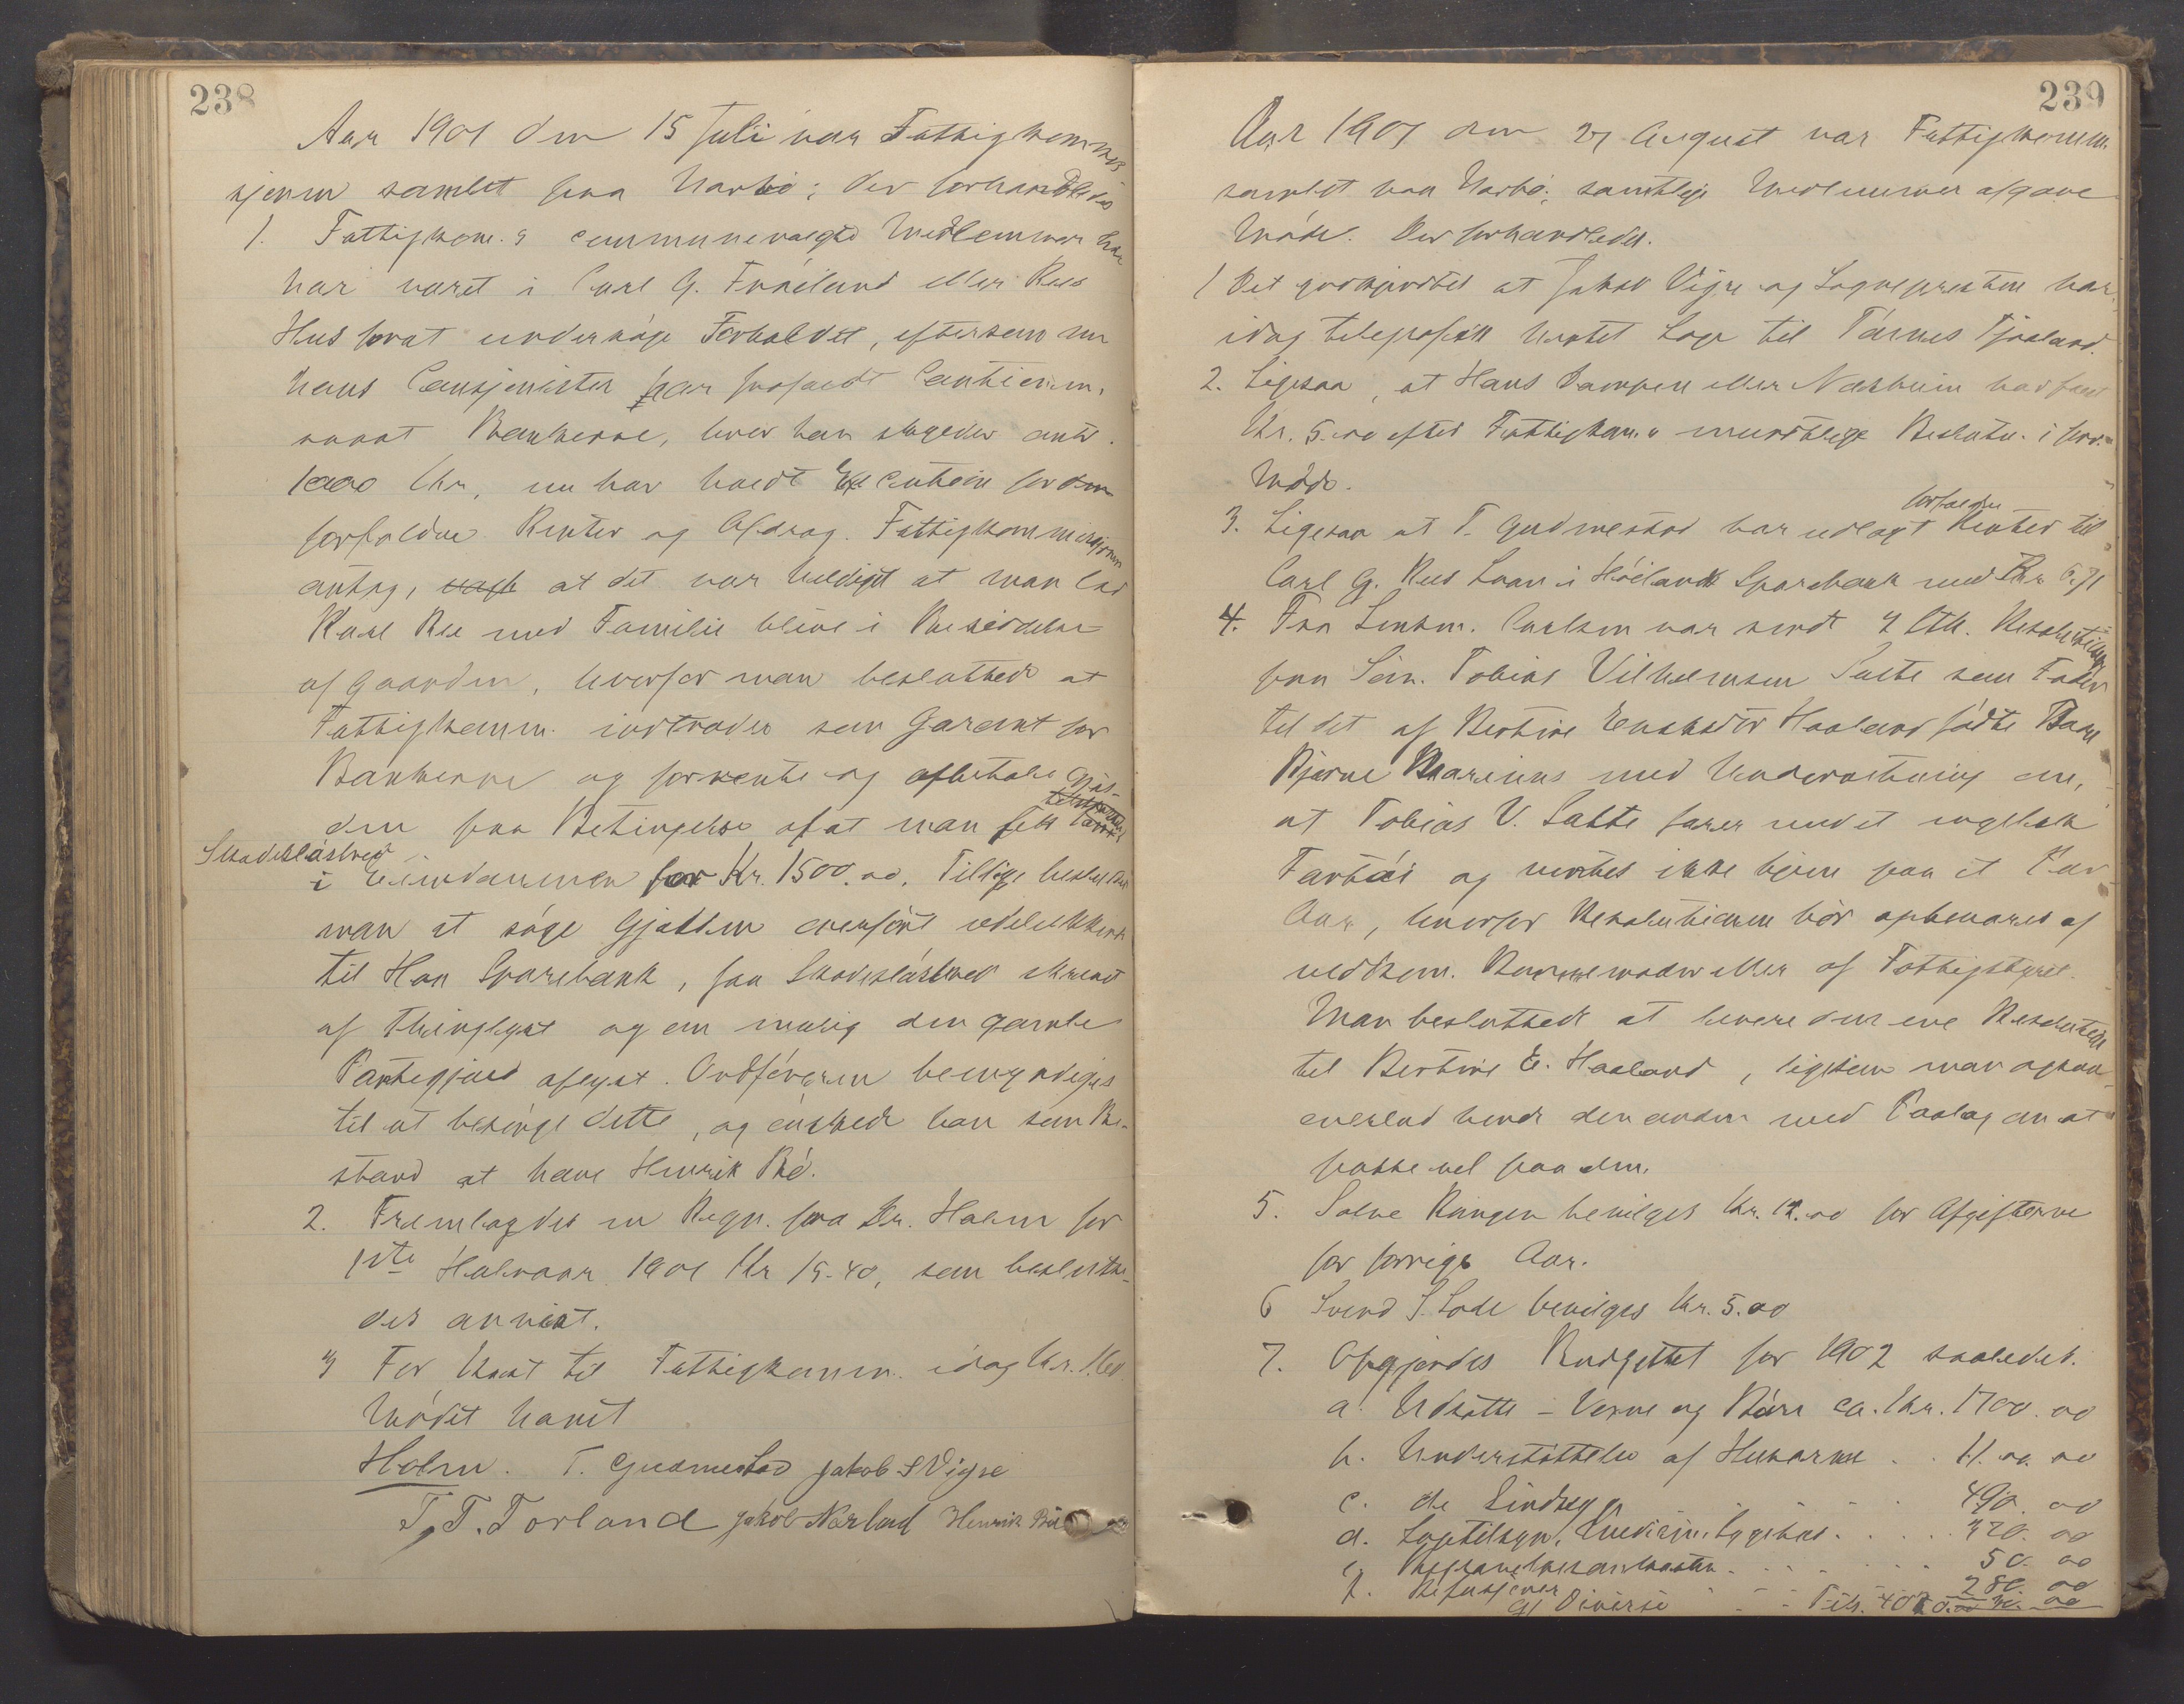 238
Aar 1901 den 15 Juli var Fattigkommis
sjonen samlet paa Narbø; der forhandledes
1. Fattigkom.s communevalgte Medlemmer har
har været i Carl G. Frøiland eller Rees
Hus forat undersøge Forholdet, eftersom nu
hans Causjonister har frafaldt Cautionen,
saaat Bankerne, hvor han skylder omtr.
1000 Kr, nu har havdt Execution for den
forfaldne Renter og Afdrag. Fattigkommissjonen
antog, at det var heldigst at man lod
Karl Ree med Familie blive i Besiddelse
af Gaarden, hvorfor man besluttede at
Fattigkomm. indtræder som Garant for
Bankerne og forrente og afbetale Gjæl-
den paa Betingelse af at man fik
Skadesløsbrev
i Eiendommen for Kr. 1500.00. Tillige beslut
man at søge Gjælden overført udelukkende
til Haa Sparebank, faa Skadesløsbrev skrevet
og Thinglyst og om mulig den gamle
Pantegjæld aflyst. Ordføreren bemyndiges
til at besørge dette, og ønskede han som Bi-
stand at have Henrik Bø.
2. Fremlagdes en Regn. fra Dr. Holm for
1ste Halvaar 1901 Kr 19.40, som beslutte-
des anvist.
3 For Kost til Fattigkomm. idag Kr.
Mødet hævet
Holm. T. Gudmestad Jakob S Vigre
T. T. Torland Jakob Nærland Henrik Bø
239
Aar 1901 den 27 August var Fattigkomm.
samlet paa Narbø; samtlige Medlemmer afgave
Møde. Der forhandledes.
1 Det godkjendtes at Jakob Vigre og Sognepresten har
idag telegrafisk hentet Læge til Tørres Tjaaland.
2. Ligesaa, at Hans eller Næsheim har faaet
Kr. 5.00 efter Fattigkom.s mundtlige Beslutn. i forr.
Møde.
3. Ligesaa at T. Gudmestad har udlagt forfaldne Renter til
Carl G. Rees Laan i Høilands Sparebank med Kr
4. Fra Lensm. Carlsen var sendt 2 Stk. Resolutioner
paa Søm. Tobias Vilhelmsen Salte som Fader
til det af Bertine Enoksdtr Haaland fødte Barn
Bjarne Marinus med Underretning om,
at Tobias V. Salte farer med et engelsk
Fartøi og ventes ikke hjem paa et Par
Aar, hvorfor Resolutionen bør opbevares af
vedkom. Barnemoder eller af Fattigstyret.
Man besluttede at levere den ene Resolution
til Bertine E. Haaland, ligesom man ogsaa
overlod hende den anden med Paalæg om at
passe vel paa den.
5. Salve Ringen bevilges Kr. 12.00 for Afgifterne
for forrige Aar.
6 Svend S. Lode bevilges Kr. 5.00
7. Opgjordes Budgettet for 1902 saaledes.
a. Udsatte - Voxne og Børn ca. Kr. 1700.00
b. Understøttelse af Husarme . . 11.00.00
c. de Sindssyge . . . 490.00
d. Lægetilsyn, Medicin, Sygehus . . . 320.00
e. . . . 50.00
f. Refusjoner . . . 280.00
g) Diverse - - - Tils.